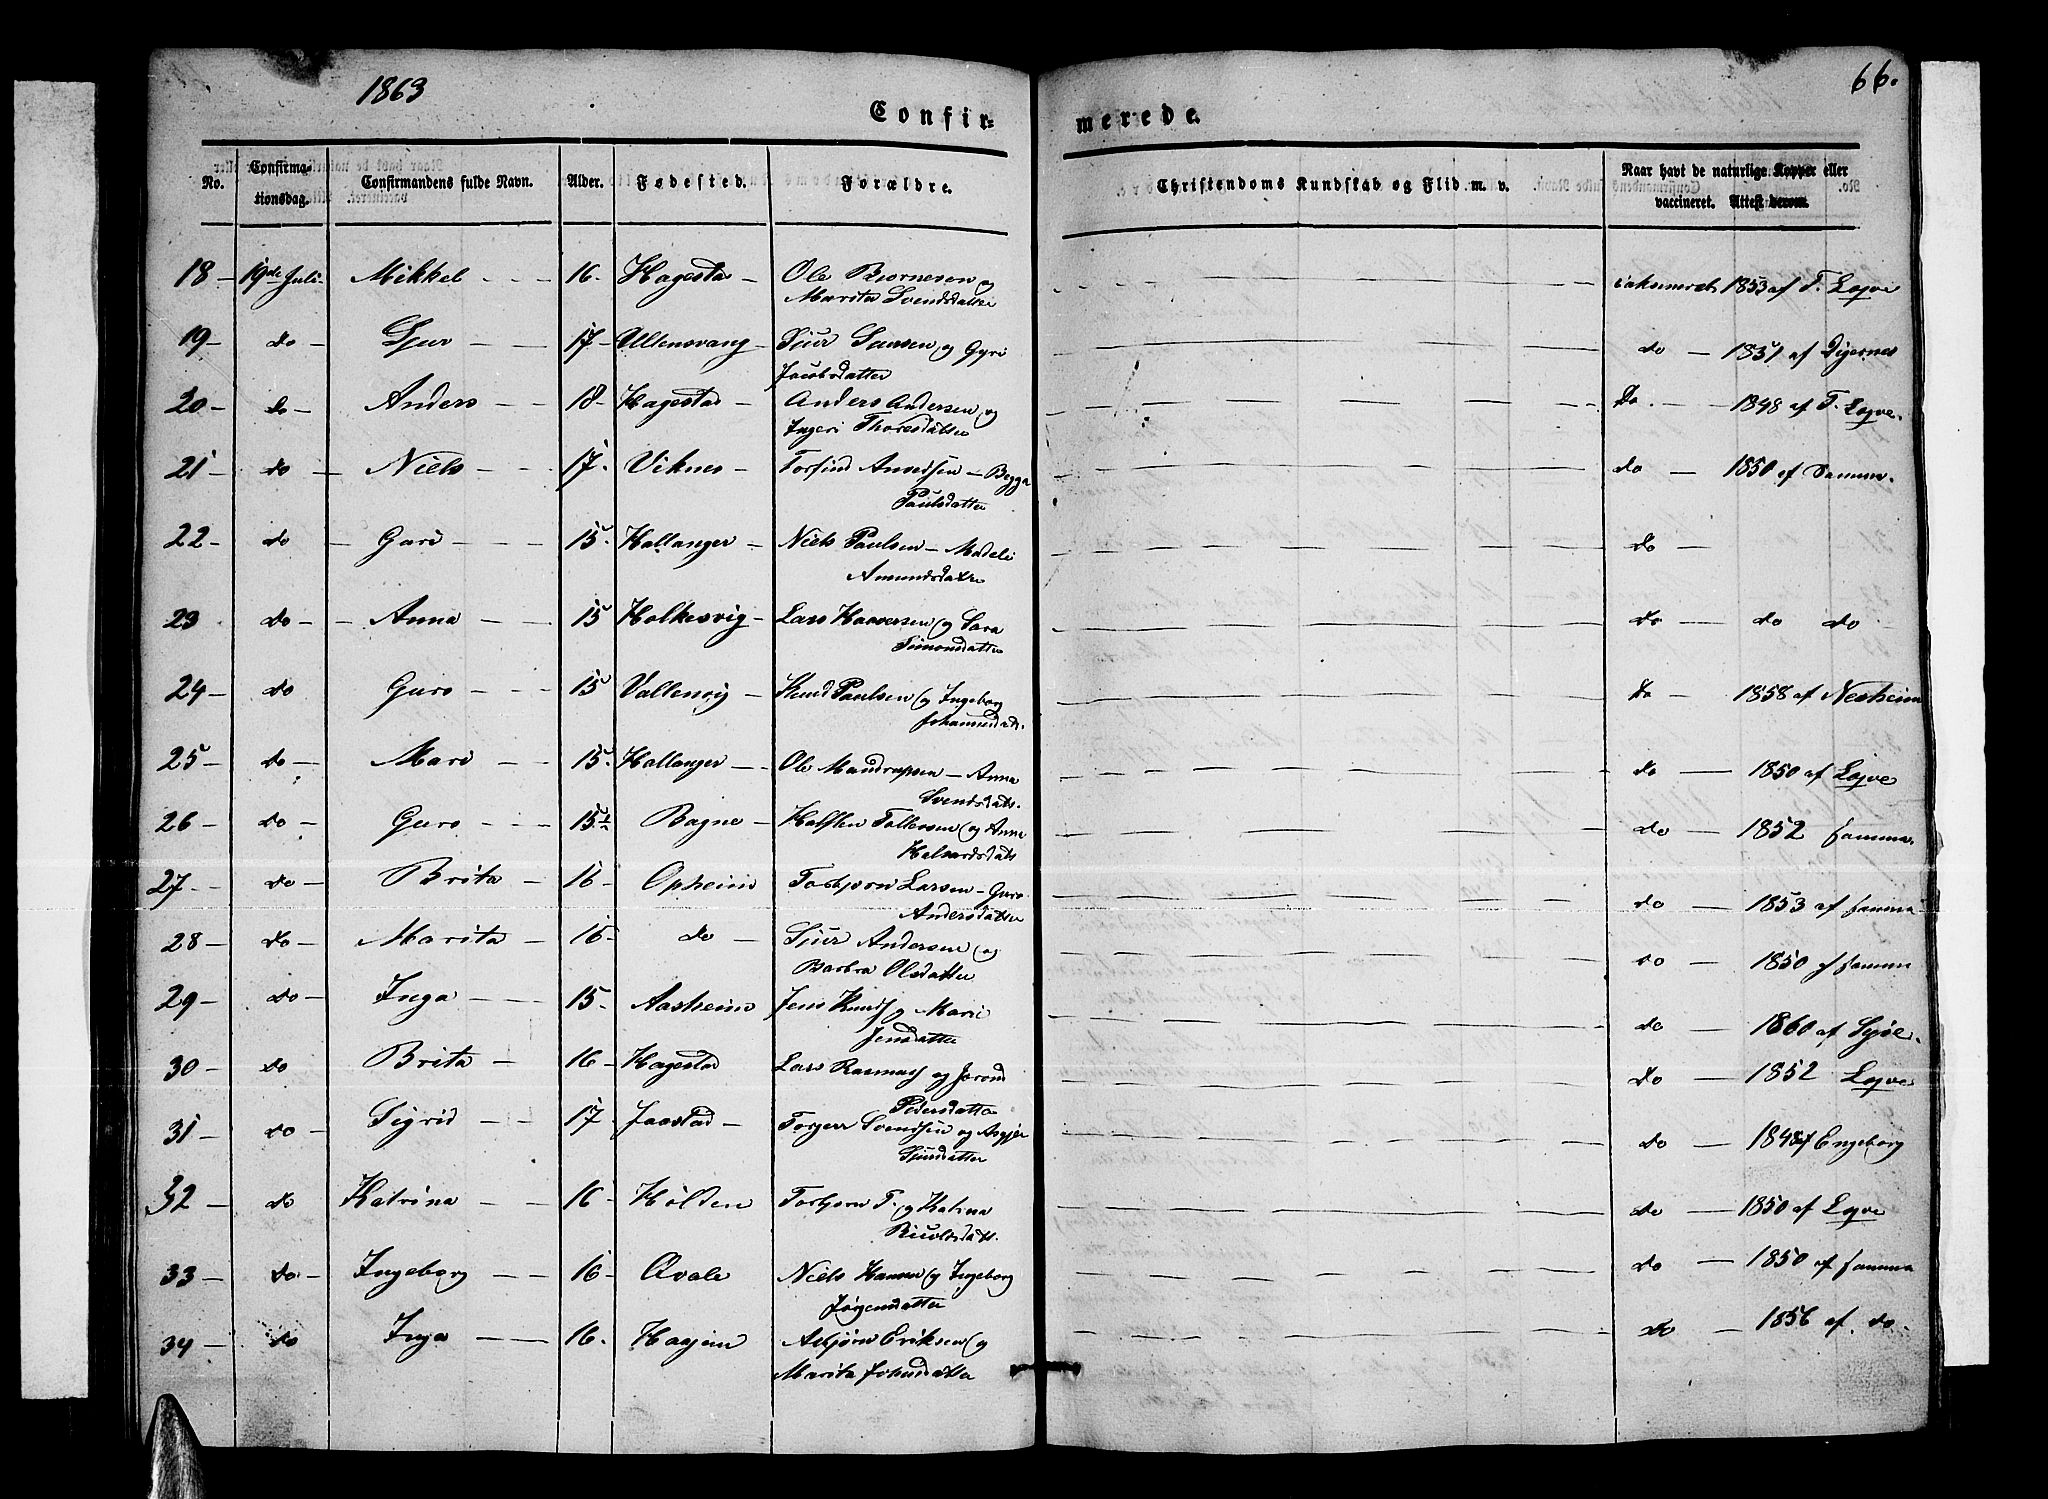 1863
66.
Confir=
merede.
No.
Confirma-
tionsdag.
Confirmandens fulde Navn.
Alder.
Fødested.
Forældre.
Christendoms Kundskab og Flid m. v.
Naar havt de naturlige Kopper eller
vaccineret. Attest derom.
18 – 19de Juli – Mikkel – 16 – Hagestad – Ole Biornesen og
Marita Svendsdatter
1853 af T. Lqve
19 – do – Sjur – 17 – Ullensvang – Siur Larsen og Gyri
Jacobsdatter
do – 1851 af Digernes
20 – do – Anders – 18 – Hagestad – Anders Andersen og
Ingeri Thoresdatter
Do – 1848 af T. Lqve.
21 – do – Niels – 17 – Viknes – Torfind – Begga
Paulsdatter
do – 1850 af Samm.
22 – do – Guri – 15 – Hallanger – Niels Paulsen –
Amundsdatter
do –
23 do – Anna – 15 Holkesvig – Lars Haaversen og Sara
Simonsdatter
do – do do
24 – do Guro – 15 Vallensvig – Knud Paulsen og Ingeborg
do – 1858 af Nesheim
25 – do – Mari – 15 – Hallanger – Ole – Anna
Svendsdatt.
do – 1850 af Lqve
26 – do – Guro – 15½ Bagne – Halsten Tollevsen og Anna
Halvardsdatt
do – 1852 samma.
27 – do – Brita – 16 – Opheim – Torbjorn Larsen – Guro
Andersdatter
do – 1853 af samma
28 – do – Marita – 16 – do – Sjur Andersen og
Barbra Olsdatter
do – 1850 af samma
29 – do – Inga – 15 – Aasheim – Jens og Mari
Jensdatter
do – 1860 af
30 – do Brita – 16 – Hagestad Lars og
Pedersdatter
do – 1852 Lqve
31 – do – Sigrid – 17 Jaastad – Torgeir Svendsen og
Sjursdatter
do – 1848 af Engeborg
32 – do Katrina – 16 – Holden Torbjorn T. og Katrina
do – 1850 af Lqve
33 – do – Ingeborg – 16 – Qvale Niels Hansen og Ingeborg
Jørgensdatter
do – 1850 af samma
34 – do Inga – 16 – Asbjørn Eriksen og
Marita Johnsdatter
do – 1856 af do.